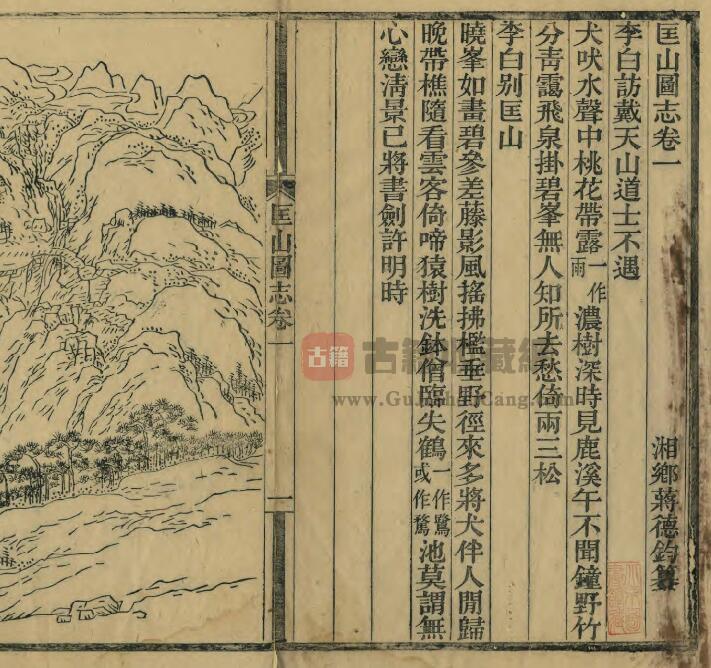 匡山圖志卷一
湘鄉蔣德鈞纂
李白訪戴天山道士不遇
犬吠水聲中桃花帶露一作雨濃樹深時見鹿溪午不聞鐘野竹
分靑靄飛泉掛碧峯無人知所去愁倚兩三松
李白別匡山
曉峯如畫碧參差藤影風搖拂檻垂野徑來多將犬伴人閒歸
晚帶樵隨看雲客倚啼猿樹洗鉢僧臨失鶴一作鷺或作鶖池莫謂無
心戀淸景已將書劍許明時
匡山圖志卷一
一
古籍
www.GuJiShuCang.com